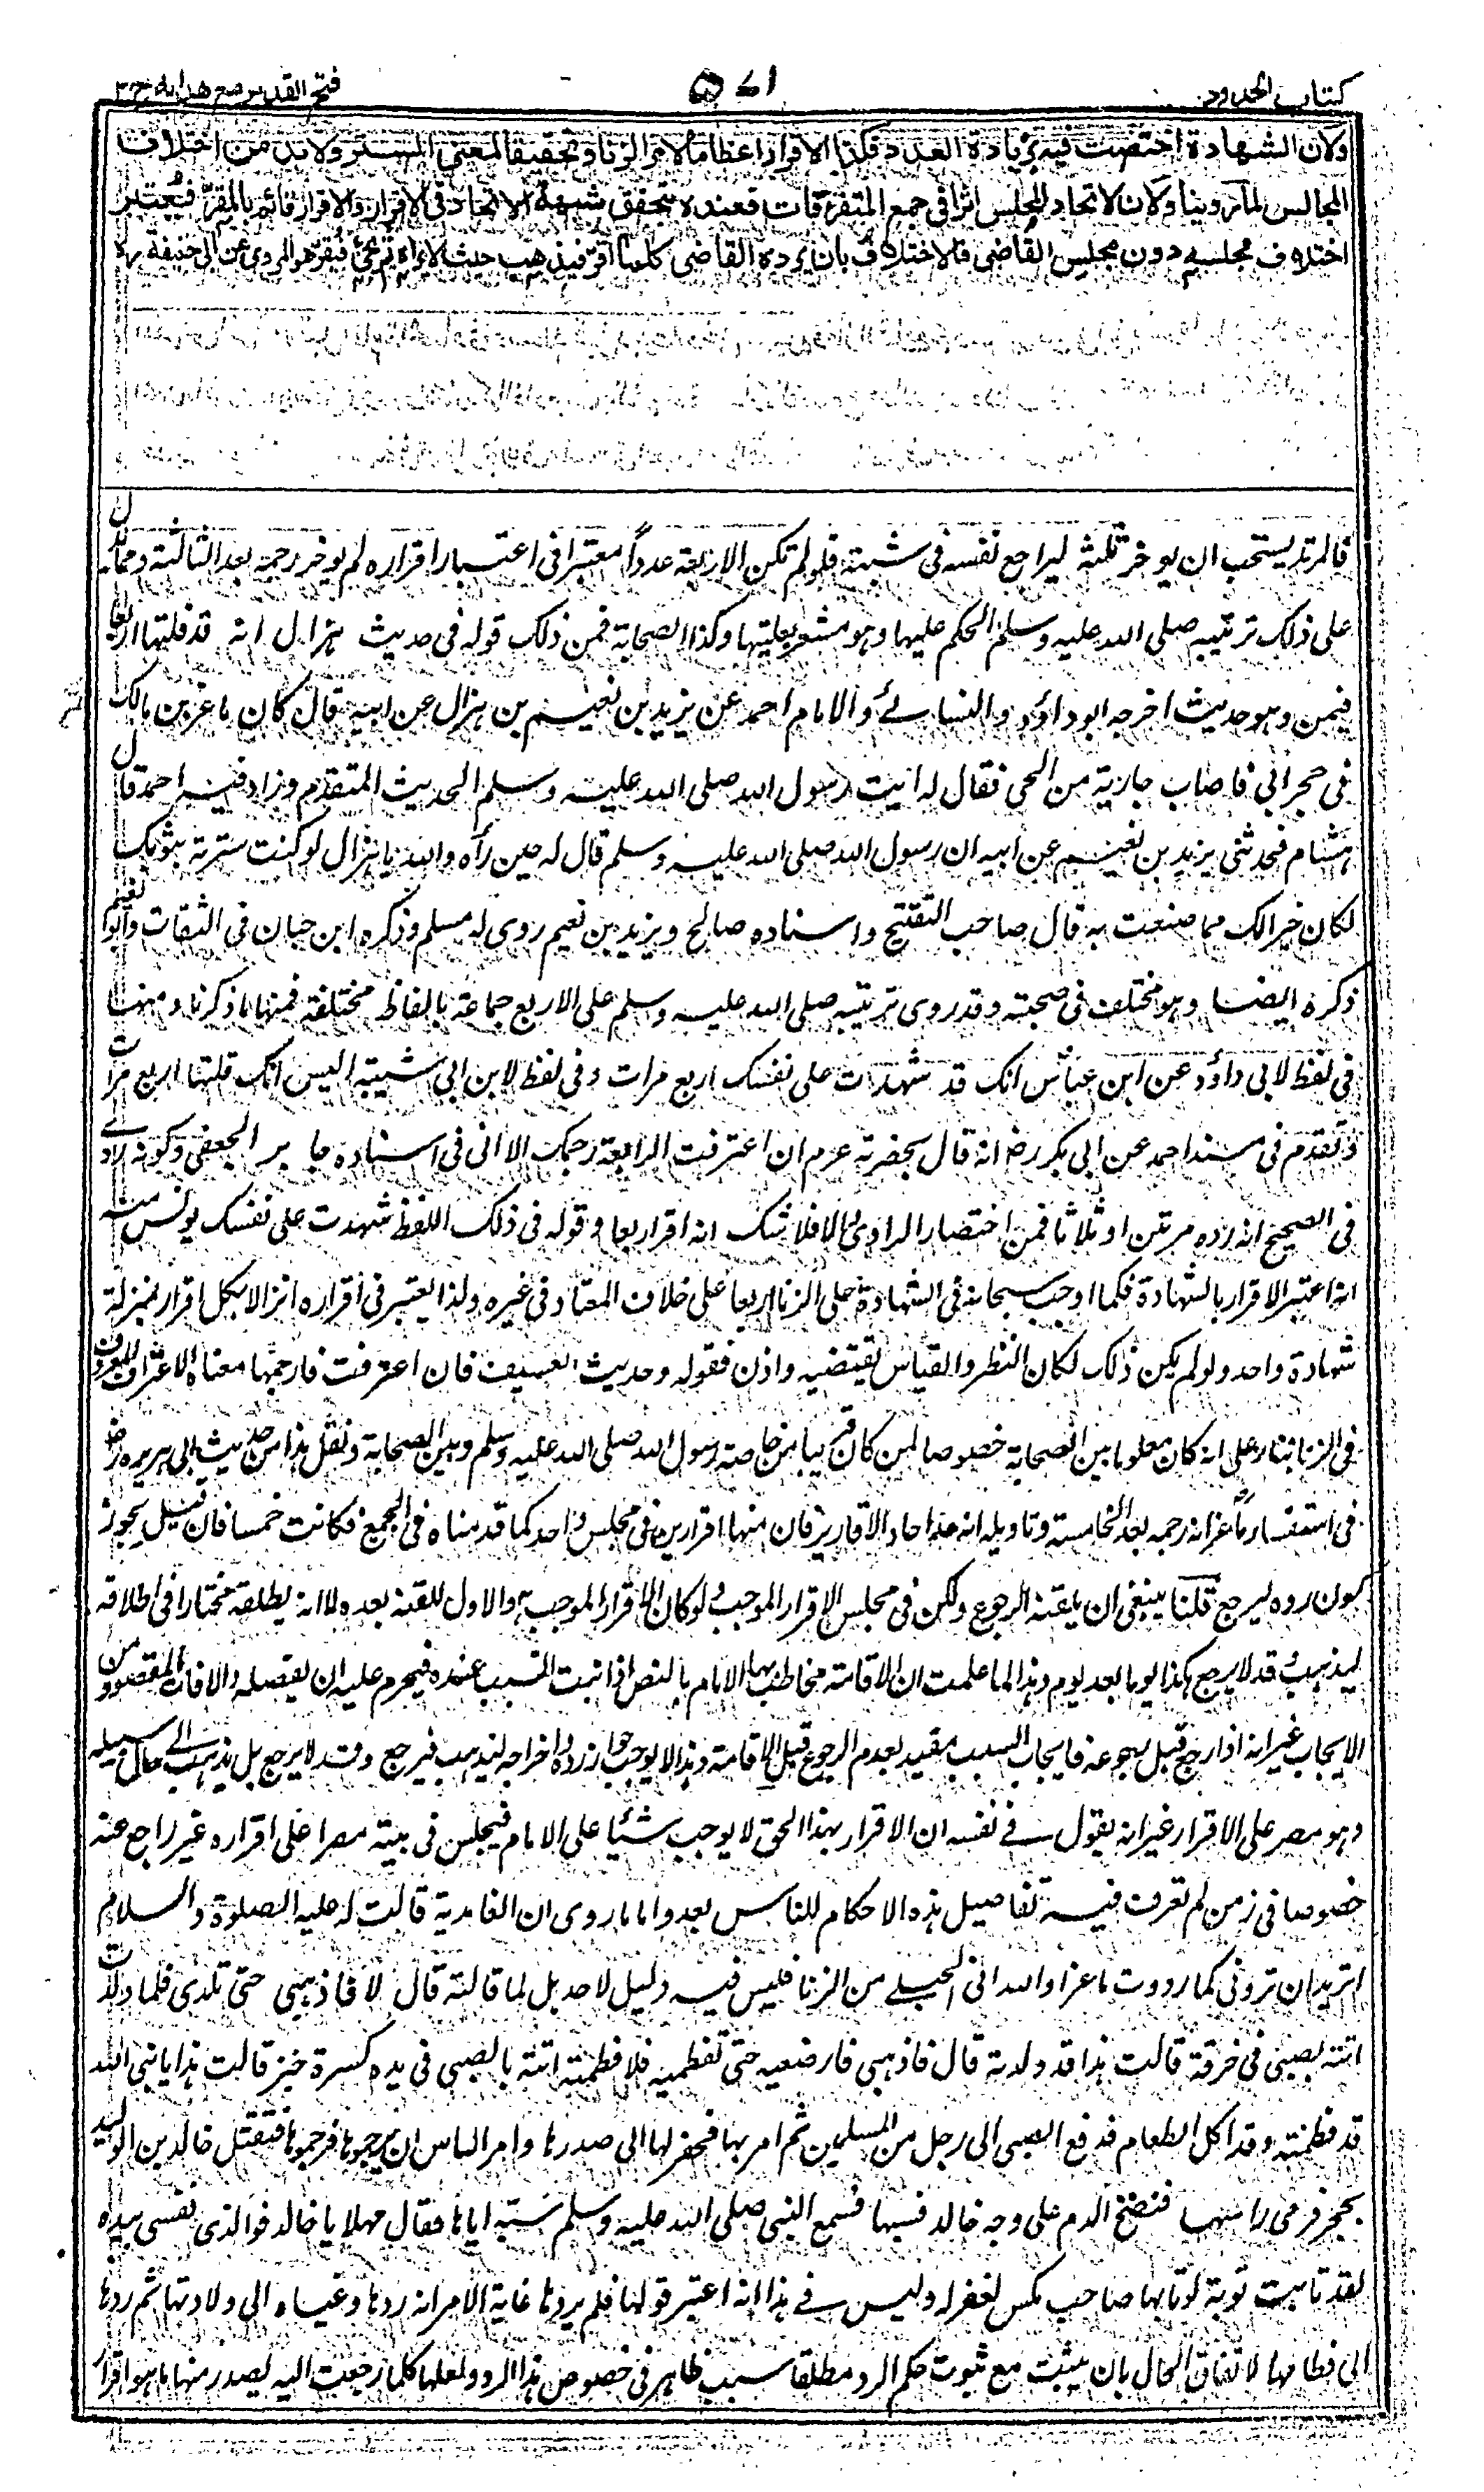 كتاب الحدود
٥٧١
فتح القدير مع هدايه ج ٢
ولان الشهادة اختصت فيه بزيادة العدد فكذا الاقرار اعظاما لامر الزنا وتحقيقا لمعنى الستر ولابد من اختلاف
المجالس لما روينا ولان لاتحاد المجلس اثرا في جمع المتفرقات فعنده تتحقق شبهة الاتحاد في الاقرار والاقرار قائم بالمقر فيعتبر
اختلاف مجلسه دون مجلس القاضى فالاختلاف بان يرده القاضى كلما اقر فيذهب حيث لا يراه ثم يجئ فيقر هو المروى عن ابى حنيفة رح
فالمرتد يستحب ان يوخر ثلثة ليراجع نفسه فى شبهته فلو لم تكن الاربعة عدداً معتبرا فى اعتبار اقراره لم يوخر رجمه بعد الثالثة ومما يدل
على ذلك ترتيبه صلى الله عليه وسلم الحكم عليها وهو مشعر بعليتها وكذا الصحابة فمن ذلك قوله فى حديث هزال انه قد قلتها اربعا
فبمن وهو حديث اخرجه ابو داؤد والنسائے والامام احمد عن يزيد بن نعيم بن هزال عن ابيه قال كان ماعز بن مالك
فى حجر ابى فاصاب جارية من الحى فقال له ائيت رسول الله صلى الله عليه وسلم الحديث المتقدم وزاد فيه احمد قال
هشام فحدثنى يزيد بن نعيم عن ابيه ان رسول الله صلى الله عليه وسلم قال له حين رأه والله يا هزال لو كنت سترته بثوبك
لكان خيرا لك مما صنعت به قال صاحب التنقيح واسناده صالح ويزيد بن نعيم روى له مسلم وذكره ابن حبان فى الثقات وابوه نعيم
ذكره ايضا وهو مختلف فى صحبته وقد روى ترتيبه صلى الله عليه وسلم على الاربع جماعة بالفاظ مختلفة فمنها ما ذكرنا ومنها
فى لفظ لابى داؤد عن ابن عباس انك قد شهدت على نفسك اربع مرات وفى لفظ لابن ابى شيبة اليس انك قلتها اربع مرات
وتقدم فى مسند احمد عن ابى بكر رض انه قال بحضرته عرم ان اعترفت الرابعة رجمك الا ان فى اسناده جابر الجعفى وكونه راوى
فى الصحيح انه رده مرتين او ثلاثا فمن اختصار الراوى والا فلا شك انه اقر اربعا وقوله فى ذلك اللفظ شهدت على نفسك يونس منه
انه اعتبر الاقرار بالشهادة فكما اوجب سبحانه فى الشهادة على الزنا اربعا على خلاف المعتاد فى غيره ولذا يعتبر فى اقراره انزالا بكل اقرار بمنزلة
شهادة واحد ولو لم يكن ذلك لكان النظر والقياس يقتضيه واذن فقوله وحديث العسيف فان اعترفت فارجمها معناه الاعتراف المعروف
فى الزنا بناء على انه كان معلوما بين الصحابة خصوصا لمن كان قريبا من خاصة رسول الله صلى الله عليه وسلم وبين الصحابة ونقل هذا من حديث ابى هريره رض
فى استفسار ماعز انه رجمه بعد الخامسة وتاويله انه عد احاد الاقارير فان منها اقرارين فى مجلس واحد كما قدمناه فى الجميع فكانت خمسا فان قيل يجوز
كون رده ليرجع قلنا ينبغى ان يلقنه الرجوع ولكن فى مجلس الاقرار الموجب ولو كان الاقرار الموجب هو الاول للقنه بعده لا انه يطلقه مختارا فى اطلاقه
ليذهب وقد لا يرجع هكذا يوما بعد يوم وهذا لما علمت ان الاقامة مخاطب بها الامام بالنص اذا ثبت السبب عنده فيحرم عليه ان يفصله والا فات المقصود من
الايجاب غير انه اذا رجع قبل رجوعه فايجاب السبب مقيد بعدم الرجوع قبل الاقامة وهذا لا يوجب جواز رده واخراجه ليذهب فيرجع وقد لا يرجع بل يذهب الى حال سبيله
وهو مصر على الاقرار غير انه يقول فے نفسه ان الاقرار بهذا الحق لا يوجب شيئا على الامام فيجلس فى بيته مصرا على اقراره غير راجع عنه
خصوصا فى زمن لم تعرف فيه تفاصيل هذه الاحكام للناس بعد واما ما روى ان الغامدية قالت له عليه الصلوة والسلام
اتريد ان تردنى كما رددت ماعزا والله انى لحبلے من الزنا فليس فيه دليل لاحد بل لما قالته قال لا فاذهبى حتى تلدى فلما ولدت
اتته بصبى فى خرقة قالت هذا قد ولدته قال فاذهبى فارضعيه حتى تفطميه فلما فطمته اتته بالصبى فى يده كسرة خبز قالت هذا يا نبى الله
قد فطمته وقد اكل الطعام فدفع الصبى الى رجل من المسلمين ثم امر بها فحفر لها الى صدرها وامر الناس ان يرجموها فرجموها فيقتبل خالد بن الوليد
بحجر فرمى راسها فنضخ الدم على وجه خالد فسبها فسمع النبى صلى الله عليه وسلم سبّه اياها فقال مهلا يا خالد فوالذى نفسى بيده
لقد تابت توبة لو تابها صاحب مكس لغفر له وليس فے هذا انه اعتبر قولها فلم يردها غاية الامر انه ردها وغياه الى ولادتها ثم ردها
الى فطامها لاتفاق الحال بان يثبت مع ثبوت حكم الرد مطلقا سبب ظاهر فى خصوص هذا الرد ولعلها كلما رجعت اليه يصدر منها ما هو اقرار